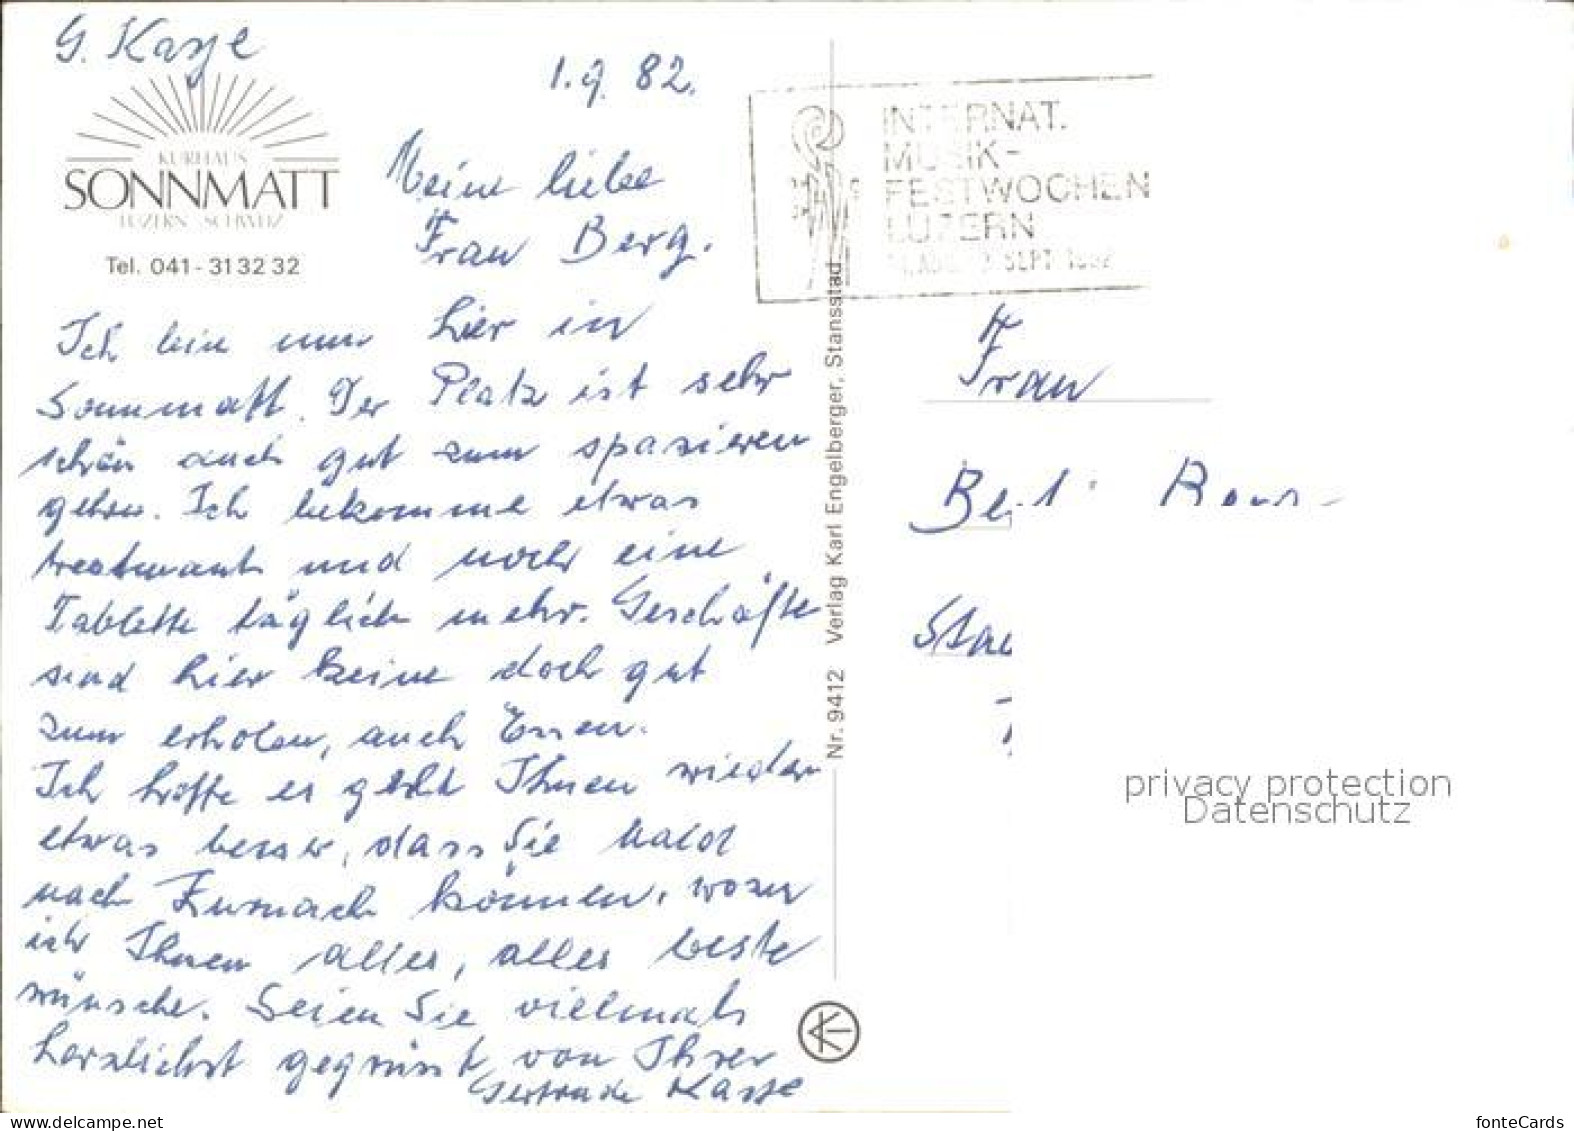 G. Kasje
KURHAUS
SONNMATT
LUZERN SCHWEIZ
Tel. 041-31 32 32
1.9.82.
Meine liebe
Frau Berg.
Ich bin nun hier in
Sonnmatt. Der Platz ist sehr
schön auch gut zum spazieren
gehen. Ich bekomme etwas
und noch eine
Tablette täglich mehr. Geschäfte
sind hier keine doch gut
zum erholen, auch Essen.
Ich hoffe es geht Ihnen wieder
etwas besser, dass Sie bald
nach Zurzach können, wozu
ich Ihnen alles, alles beste
wünsche. Seien Sie vielmals
herzlichst gegrüsst von Ihrer
Gertrude
Nr. 9412 Verlag Karl Engelberger, Stansstad
INTERNAT.
MUSIK-
FESTWOCHEN
LUZERN
SEPT 1982
Frau
privacy protection
Datenschutz
www.delcampe.net
fonteCards